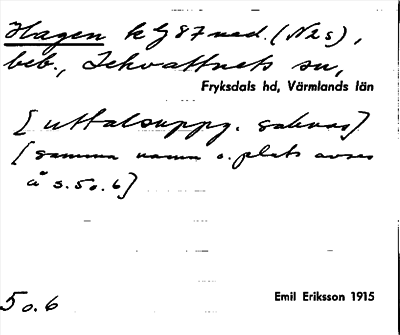 Hagen k G 87 ned. (N2s),
beb., Lekvattnets sn,
Fryksdals hd, Värmlands län
[uttalsuppg. saknas]
[samma namn o. plats avses
å s. 50.6]
Emil Eriksson 1915
50.6